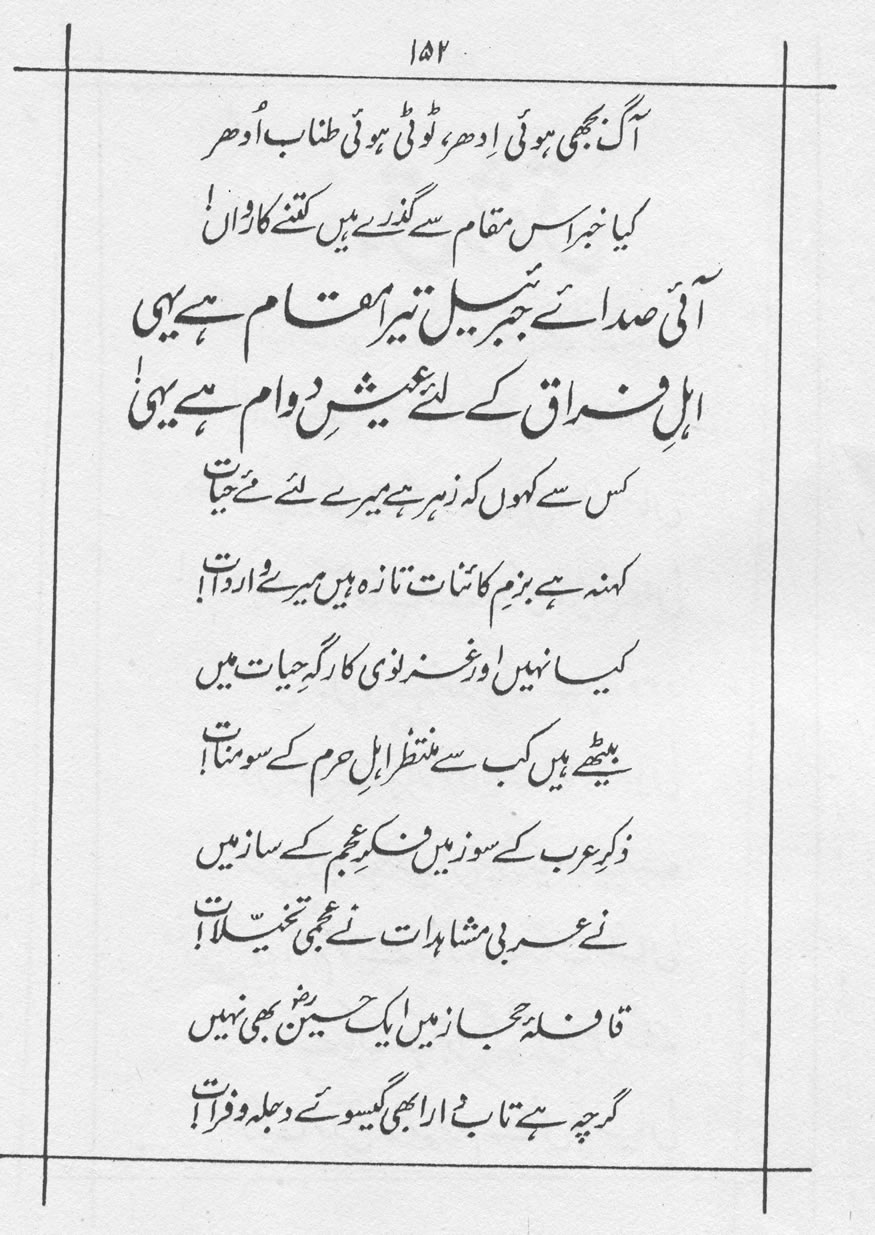 ۱۵۲
آگ بجھی ہوئی اِدھر، ٹوٹی ہوئی طناب اُدھر
کیا خبر اِس مقام سے گذرے ہیں کتنے کارواں!
آئی صدائے جبرئیل تیرا مقام ہے یہی
اہلِ فراق کے لئے عیشِ دوام ہے یہی!
کس سے کہوں کہ زہر ہے میرے لئے مئے حیات
کہنہ ہے بزمِ کائنات تازہ ہیں میرے واردات!
کیا نہیں اور غزنوی کارگہِ حیات میں
بیٹھے ہیں کب سے منتظر اہلِ حرم کے سومنات!
ذکرِ عرب کے سوز میں فکرِ عجم کے ساز میں
نے عربی مشاہدات نے عجمی تخیّلات!
قافلۂ حجاز میں ایک حسینؓ بھی نہیں
گرچہ ہے تاب دار ابھی گیسوئے دجلہ و فرات!